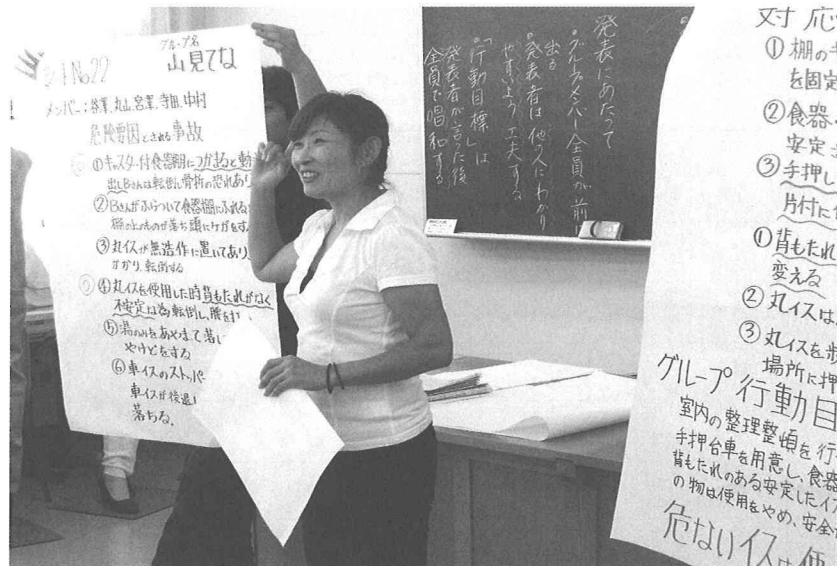 シートNo.22
グループ名
山見てな
メンバー:谷業、丸山、宮業、寺田、中村
危険要因とされる事故
①キャスター付食器棚につかまると動
出しBさんは転倒し骨折の恐れあり
②Bさんがふらついて食器棚にふれる
棚の上のものが落ち頭にケガをす
③丸イスが無造作に置いてあり、
かかり、転倒する
④丸イスを使用した時背もたれがなく
不安定な為転倒し、腰を
⑤湯のみをあやまって落
やけどをする
⑥車イスのストッパー
車イスが後退し
落ちる。
発表にあたって
・グループメンバー全員が前に
出る
・発表者は他の人にわかり
やすいよう工夫する
・「行動目標」は
発表者が言った後
全員で唱和する
対応
①棚の
を固定
②食器
安定
③手押し
片付に
①背もたれ
変える
②丸イスは、
③丸イスを
場所に押
グループ行動目
室内の整理整頓を行
手押台車を用意し、食器
背もたれのある安定したイス
の物は使用をやめ、安全
危ないイスは使